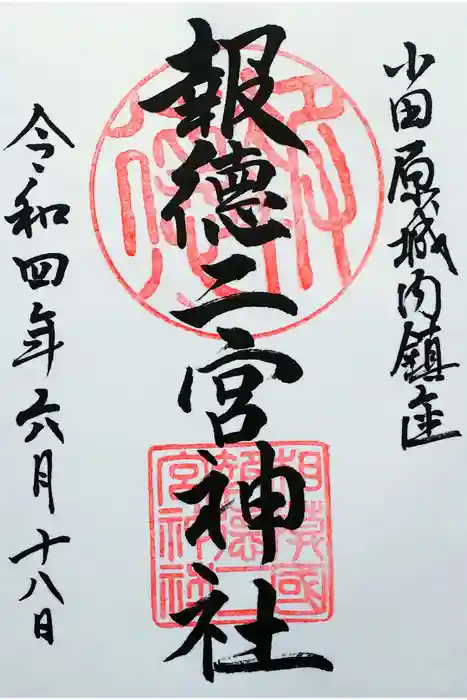 小田原城内鎮座
報徳二宮神社
令和四年六月十八日
相模國
報徳二
宮神社